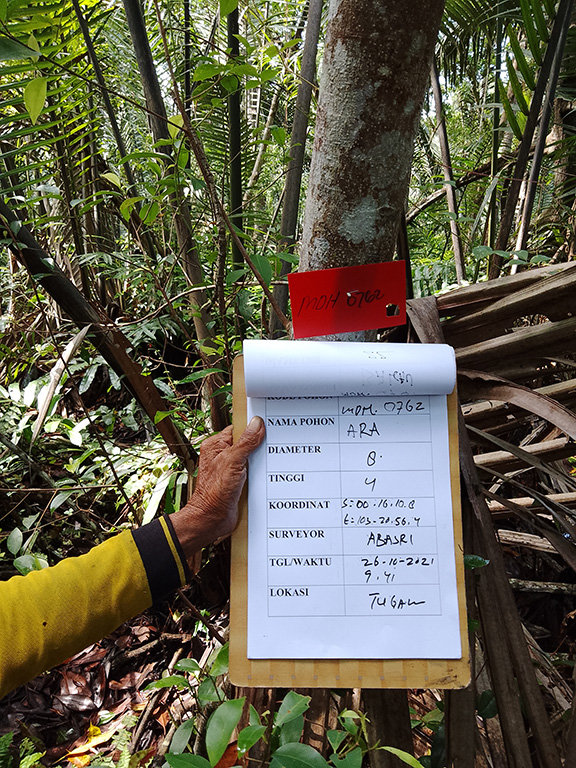 MDH 0762
KODE POHON MDH 0762
NAMA POHON ARA
DIAMETER 8.
TINGGI 4
KOORDINAT S=00.16.10.8
E=103-20.56.4
SURVEYOR ABASRI
TGL/WAKTU 26-10-2021
9.41
LOKASI